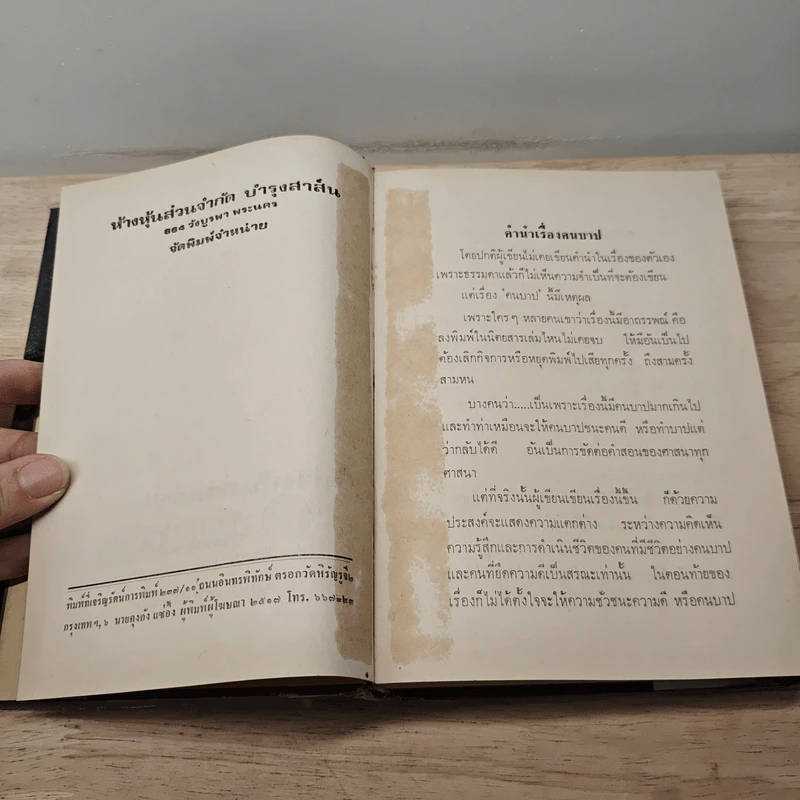 ห้างหุ้นส่วนจำกัด บำรุงสาส์น
๑๑๔ วังบูรพา พระนคร
จัดพิมพ์จำหน่าย
พิมพ์ที่เจริญรัตน์การพิมพ์ ๒๓๗/๑๐ ถนนอินทรพิทักษ์ ตรอกวัดหิรัญรูจี
กรุงเทพฯ, ๖ นายคุงกัง แซ่อึ้ง ผู้พิมพ์ผู้โฆษณา ๒๕๑๗ โทร.
คำนำเรื่องคนบาป
โดยปกติผู้เขียนไม่เคยเขียนคำนำในเรื่องของตัวเอง
เพราะธรรมดาแล้วก็ไม่เห็นความจำเป็นที่จะต้องเขียน
แต่เรื่อง ‘คนบาป’ นี้มีเหตุผล
เพราะใครๆ หลายคนเขาว่าเรื่องนี้มีอาถรรพณ์ คือ
ลงพิมพ์ในนิตยสารเล่มไหนไม่เคยจบ ให้มีอันเป็นไป
ต้องเลิกกิจการหรือหยุดพิมพ์ไปเสียทุกครั้ง ถึงสามครั้ง
สามหน
บางคนว่า.....เป็นเพราะเรื่องนี้มีคนบาปมากเกินไป
และทำท่าเหมือนจะให้คนบาปชนะคนดี หรือทำบาปแต่
ว่ากลับได้ดี อันเป็นการขัดต่อคำสอนของศาสนาทุก
ศาสนา
แต่ที่จริงนั้นผู้เขียนเขียนเรื่องนี้ขึ้น ก็ด้วยความ
ประสงค์จะแสดงความแตกต่าง ระหว่างความคิดเห็น
ความรู้สึกและการดำเนินชีวิตของคนที่มีชีวิตอย่างคนบาป
และคนที่ยึดความดีเป็นสรณะเท่านั้น ในตอนท้ายของ
เรื่องก็ไม่ได้ตั้งใจจะให้ความชั่วชนะความดี หรือคนบาป